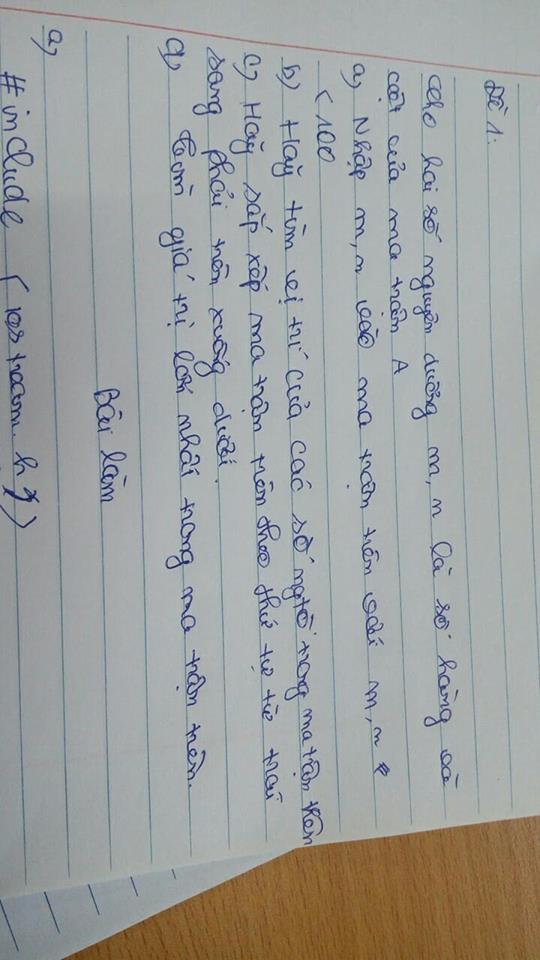 Đề 1:
Cho hai số nguyên dương m, n là số hàng và
cột của ma trận A
a) Nhập m, n vào ma trận trên với m, n
< 100
b) Hãy tìm vị trí của các số ngtố trong ma trận trên
c) Hãy sắp xếp ma trận trên theo thứ tự từ trái
sang phải trên xuống dưới.
d) Tìm giá trị lớn nhất trong ma trận trên.
Bài làm
a)
#include (iostream.h)